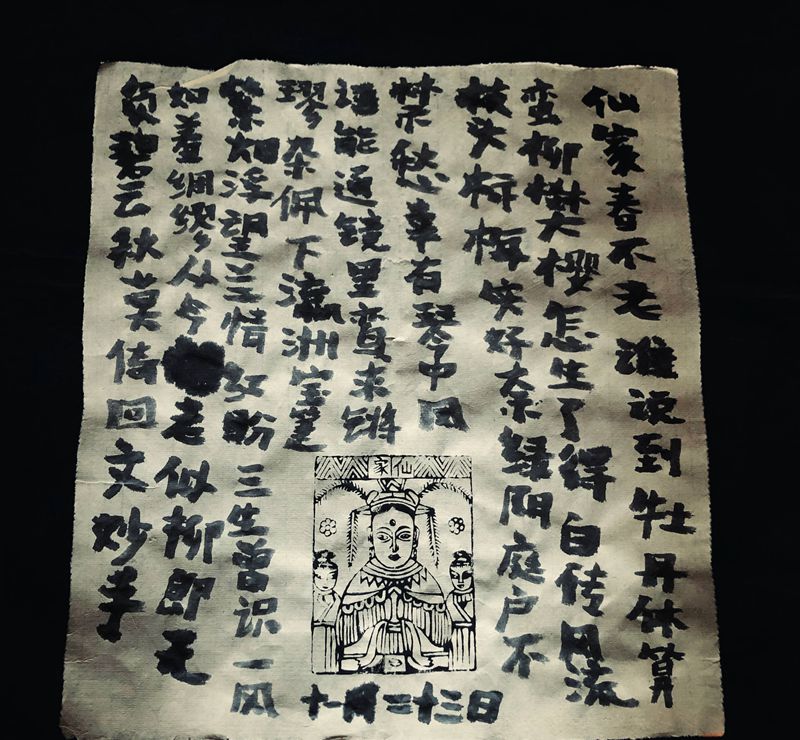 仙家春不老谁说到牡丹休算
蛮柳樊樱怎生了得白传风流
枝头标梅实好奈绿阴庭户不
禁愁幸有琴中凤
谁能通镜里鸾来锵
璆杂佩下瀛洲宝篆
萦如浮望兰情盼三生曾识一风
如羞绸缪从今老似柳郎无
负碧云秋莫回文妙手
仙家
十一月二十三日